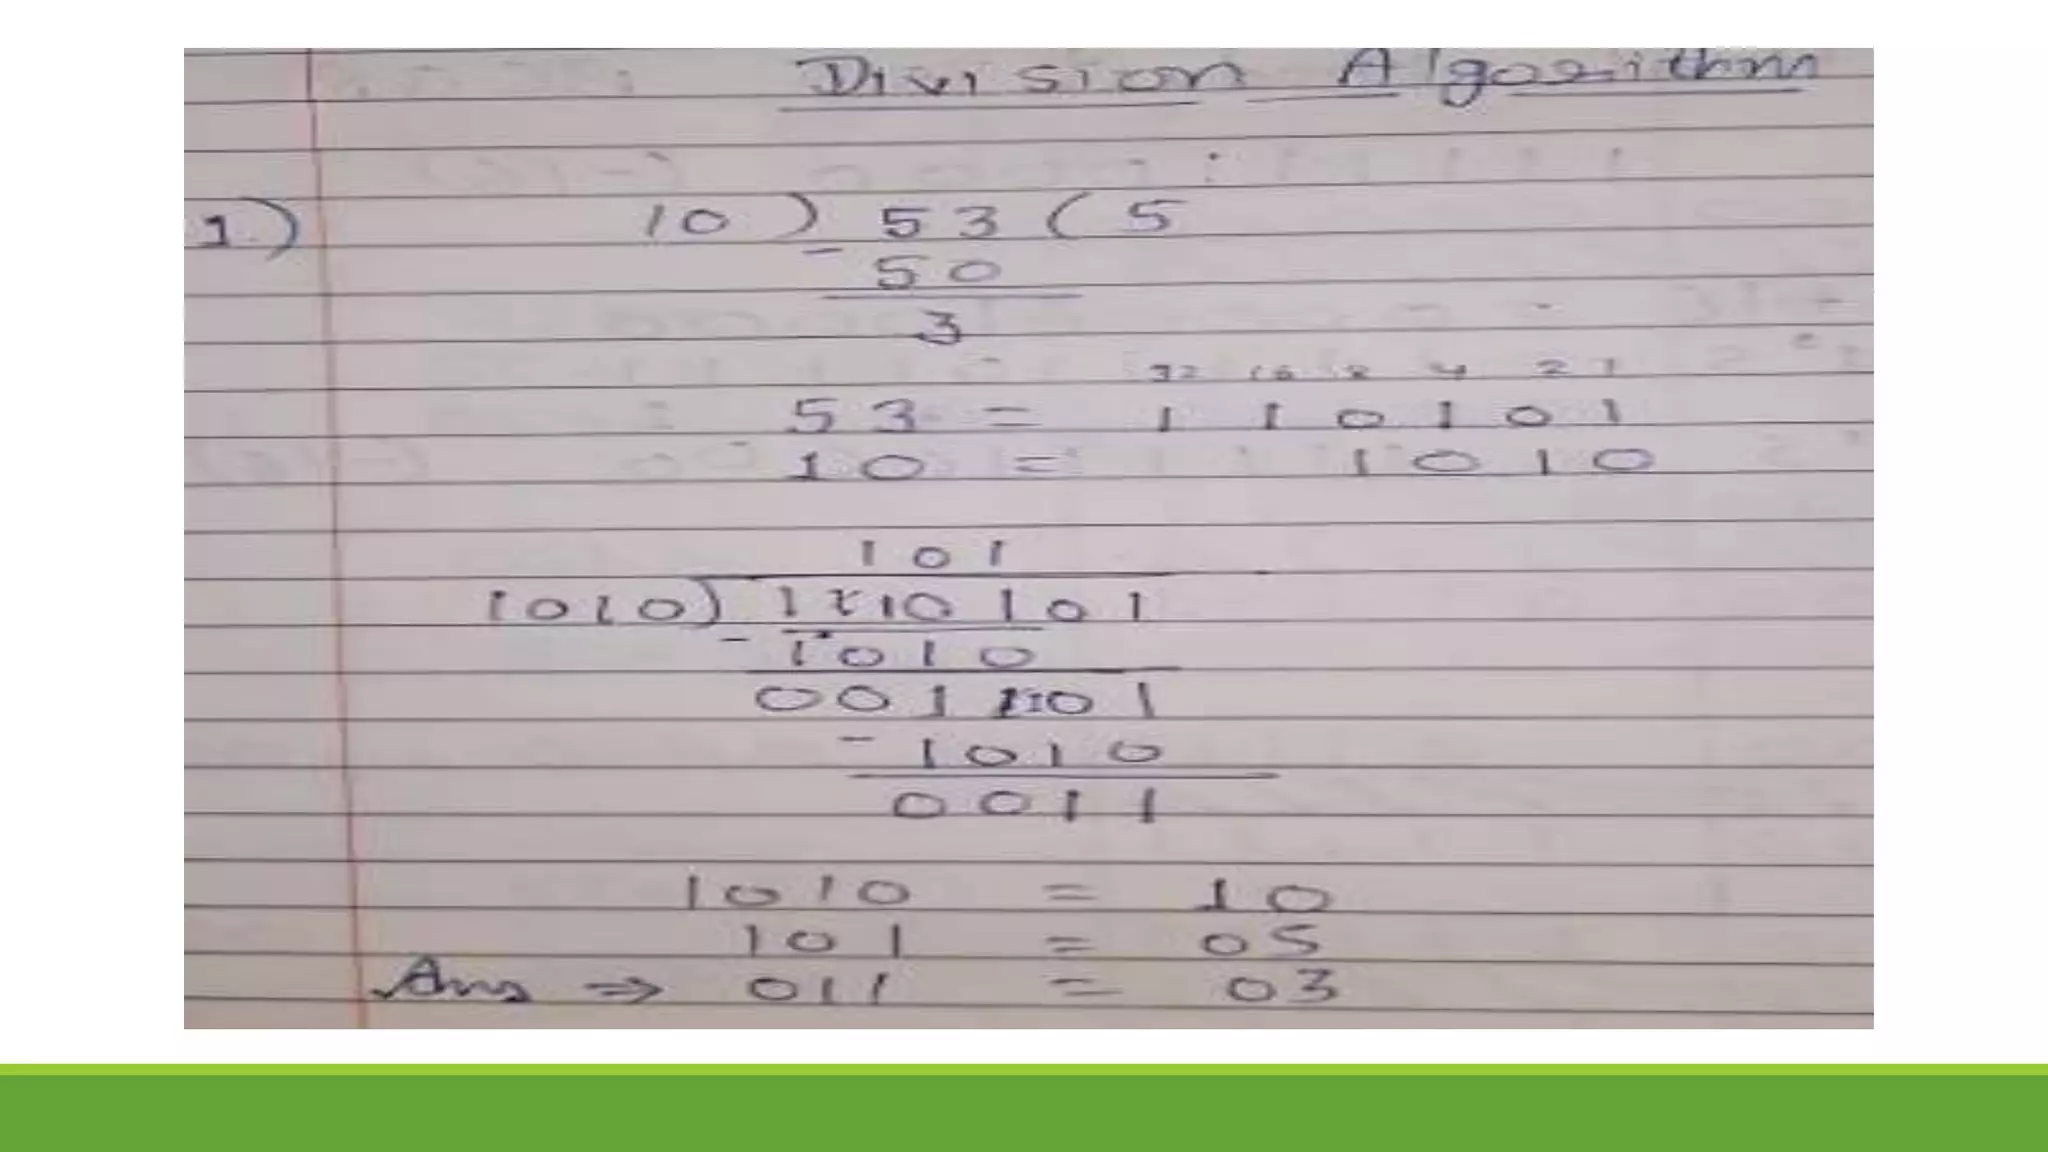 Division Algorithm
1.) 10 ) 53 ( 5
- 50
3
32 16 8 4 2 1
53 = 1 1 0 1 0 1
10 = 1 0 1 0
1 0 1
1010 ) 1 1 0 1 0 1
- 1 0 1 0
0 0 1 1 0 1
- 1 0 1 0
0 0 1 1
1010 = 10
101 = 05
Ans ⇒ 011 = 03